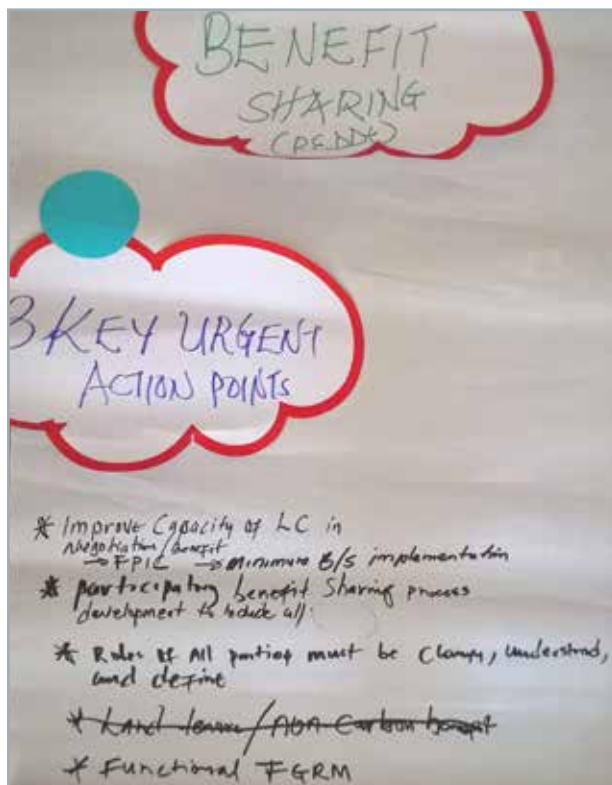 BENEFIT
SHARING
3 KEY URGENT
ACTION POINTS
* Improve Capacity of LC in
Negotiation/benefit
→ FPIC → minimum B/S implementation
* participatory benefit Sharing process
development to include all
* Roles of All parties must be , understand,
and define
* Land tenure/Non Carbon benefit
* Functional FGRM